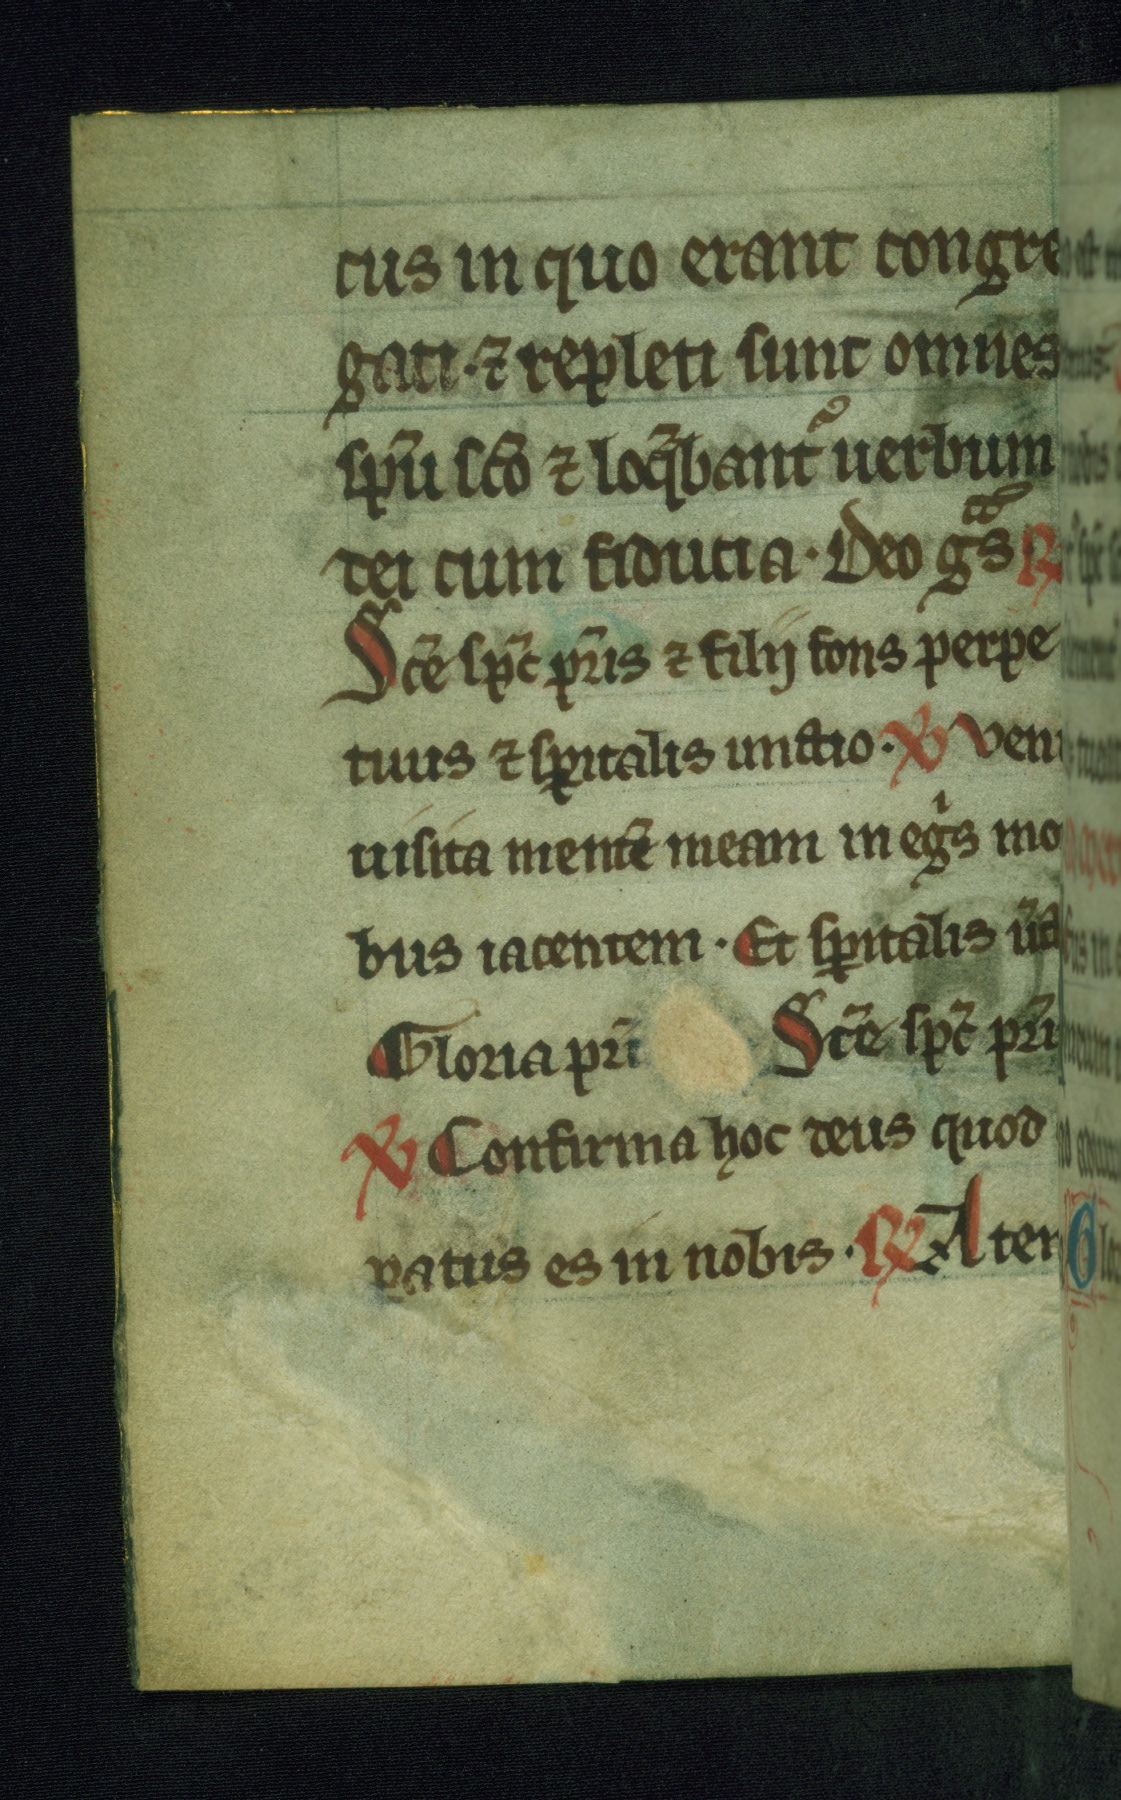 cus in quo erant congre
gati · ⁊ repleti sunt omnes
sp̄u sc̄o ⁊ loq̄bantᷣ uerbum
dei cum fiducia · Deo gr̄s ℟
Sc̄e sp̄c pr̄is ⁊ filij fons perpe
tuus ⁊ sp̄italis unctio · ℣ Veni
uisita mentē meam in egͥs mo
bus iacentem · Et sp̄italis ūct
Gloria pr̄i Sc̄e sp̄c pr̄i
℣ Confirma hoc deus quod
ratus es in nobis · ℟ A ter